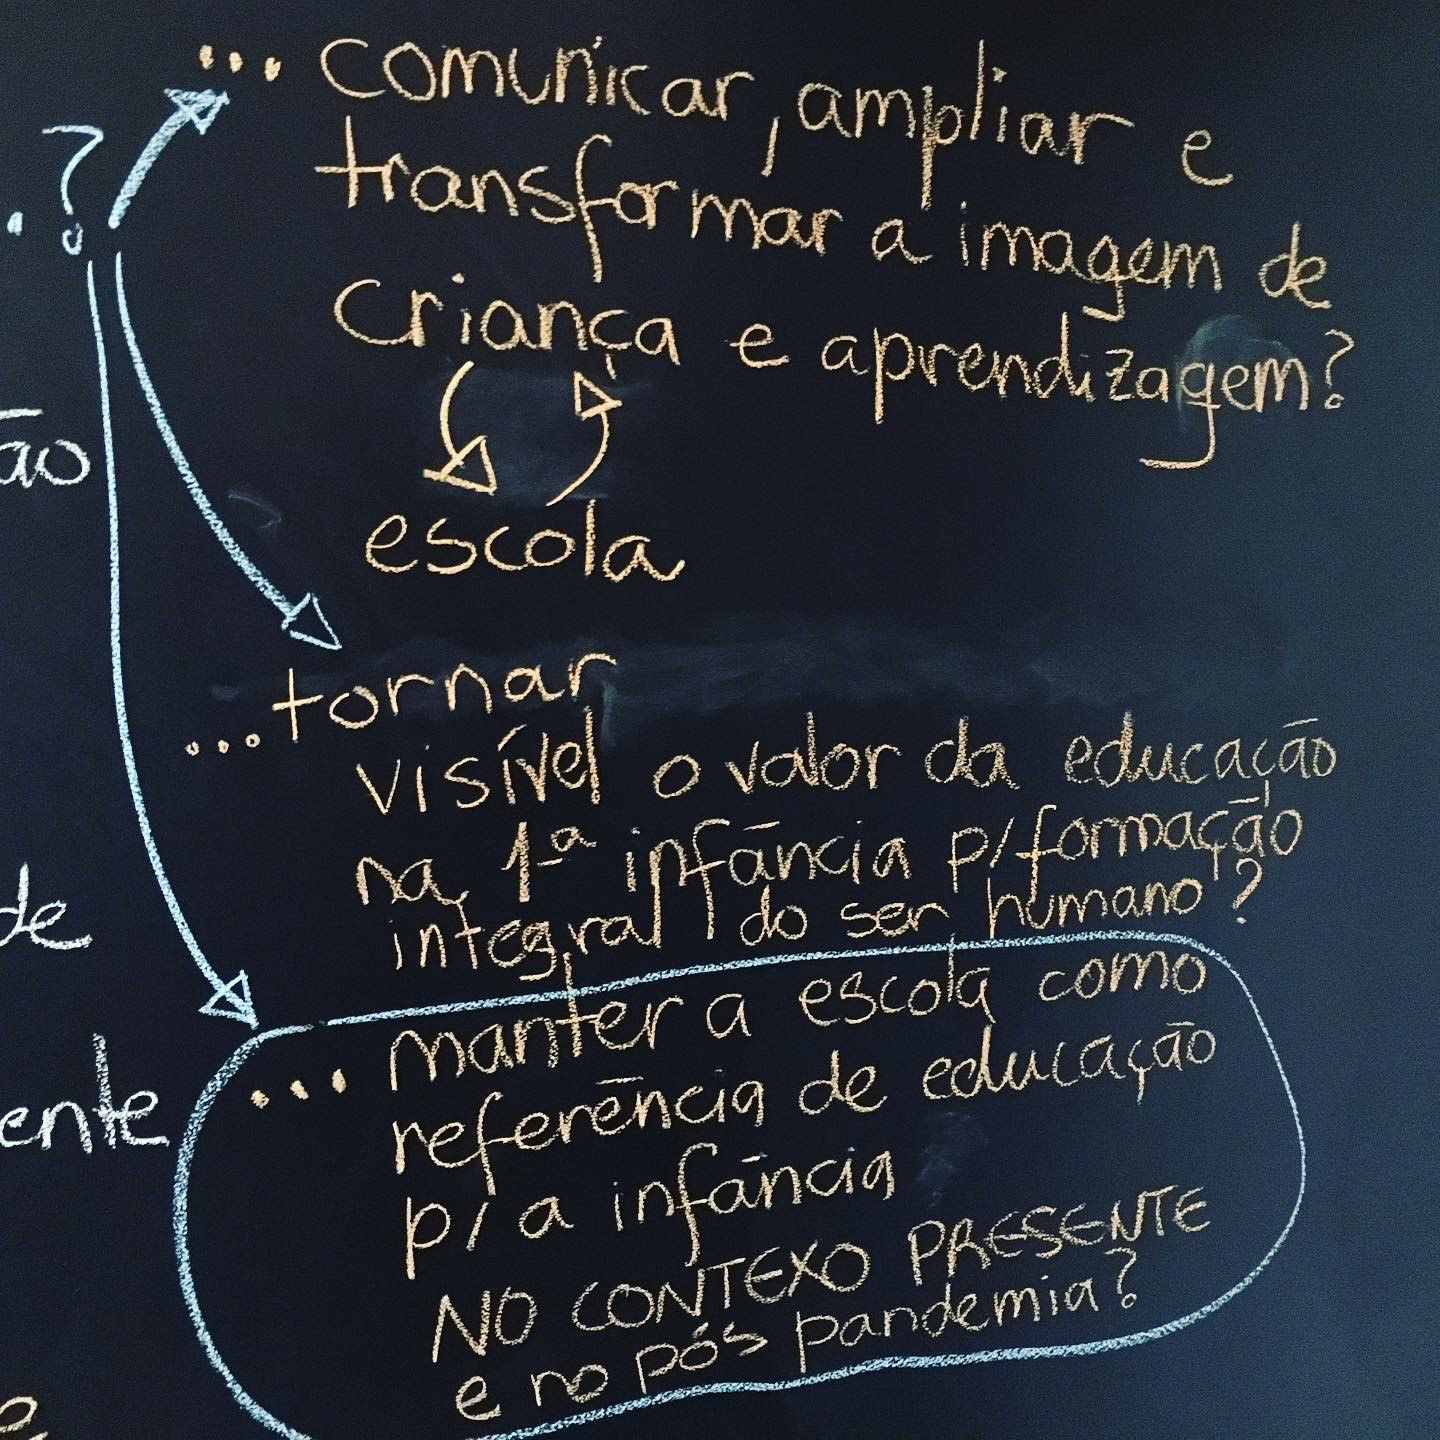 ... comunicar, ampliar e
transformar a imagem de
criança e aprendizagem?
escola
...tornar
visível o valor da educação
na 1ª infância p/ formação
integral do ser humano?
... manter a escola como
referência de educação
p/ a infância
NO CONTEXO PRESENTE
e no pós pandemia?
.?
ão
de
ente
e